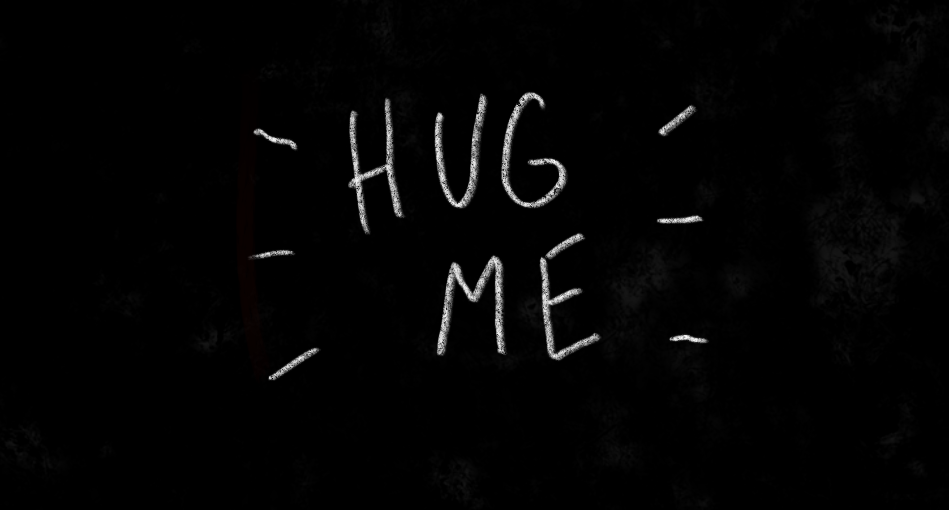 HUG
ME